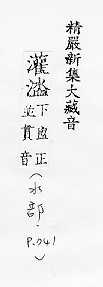 精嚴新集大藏音
灌
下盥正
並貫
音(水部.P.041)